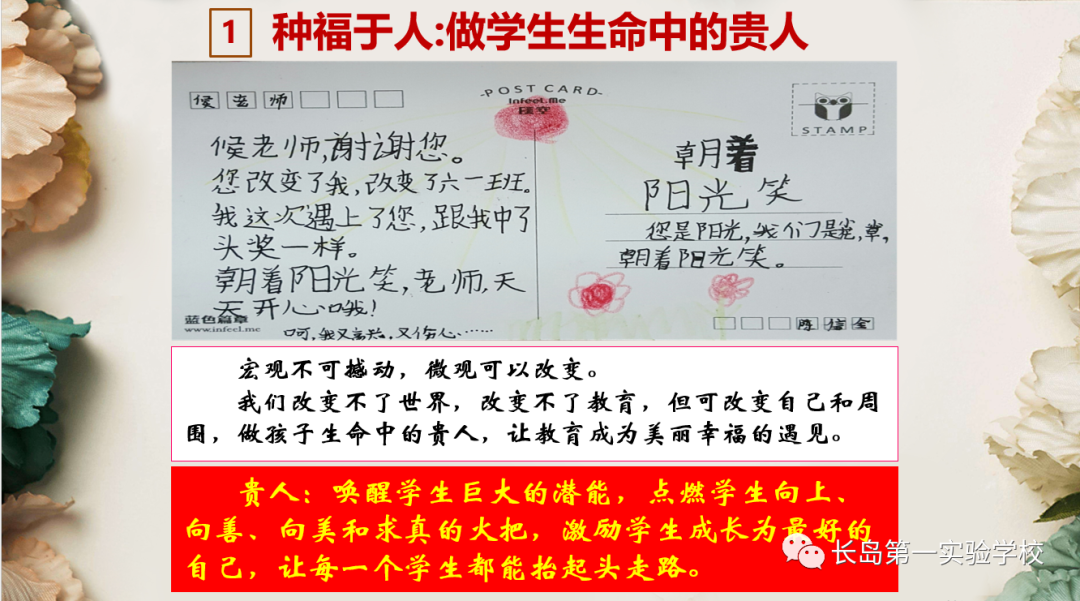 1 种福于人:做学生生命中的贵人
-POST CARD-
Infeel.Me
STAMP
候老师
候老师,谢谢您。
您改变了我,改变了六一班。
我这次遇上了您,跟我中了
头奖一样。
朝着阳光笑,老师,天
天开心哦!
呵,我又高兴,又伤心……
蓝色篇章
www.infeel.me
朝着
阳光笑
您是阳光,我们是花,草,
朝着阳光笑。
陈
宏观不可撼动，微观可以改变。
我们改变不了世界，改变不了教育，但可改变自己和周
围，做孩子生命中的贵人，让教育成为美丽幸福的遇见。
贵人：唤醒学生巨大的潜能，点燃学生向上、
向善、向美和求真的火把，激励学生成长为最好的
自己，让每一个学生都能抬起头走路。
长岛第一实验学校